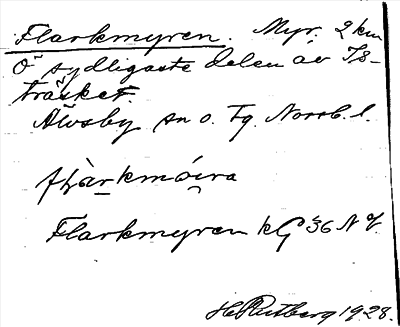 Flarkmyren. Myr. 2 km
Ö sydligaste delen av Is-
träsket.
Älvsby sn o. Tg. Norrb. l.
Flarkmyren kG 36 N
H. Rutberg 1928.